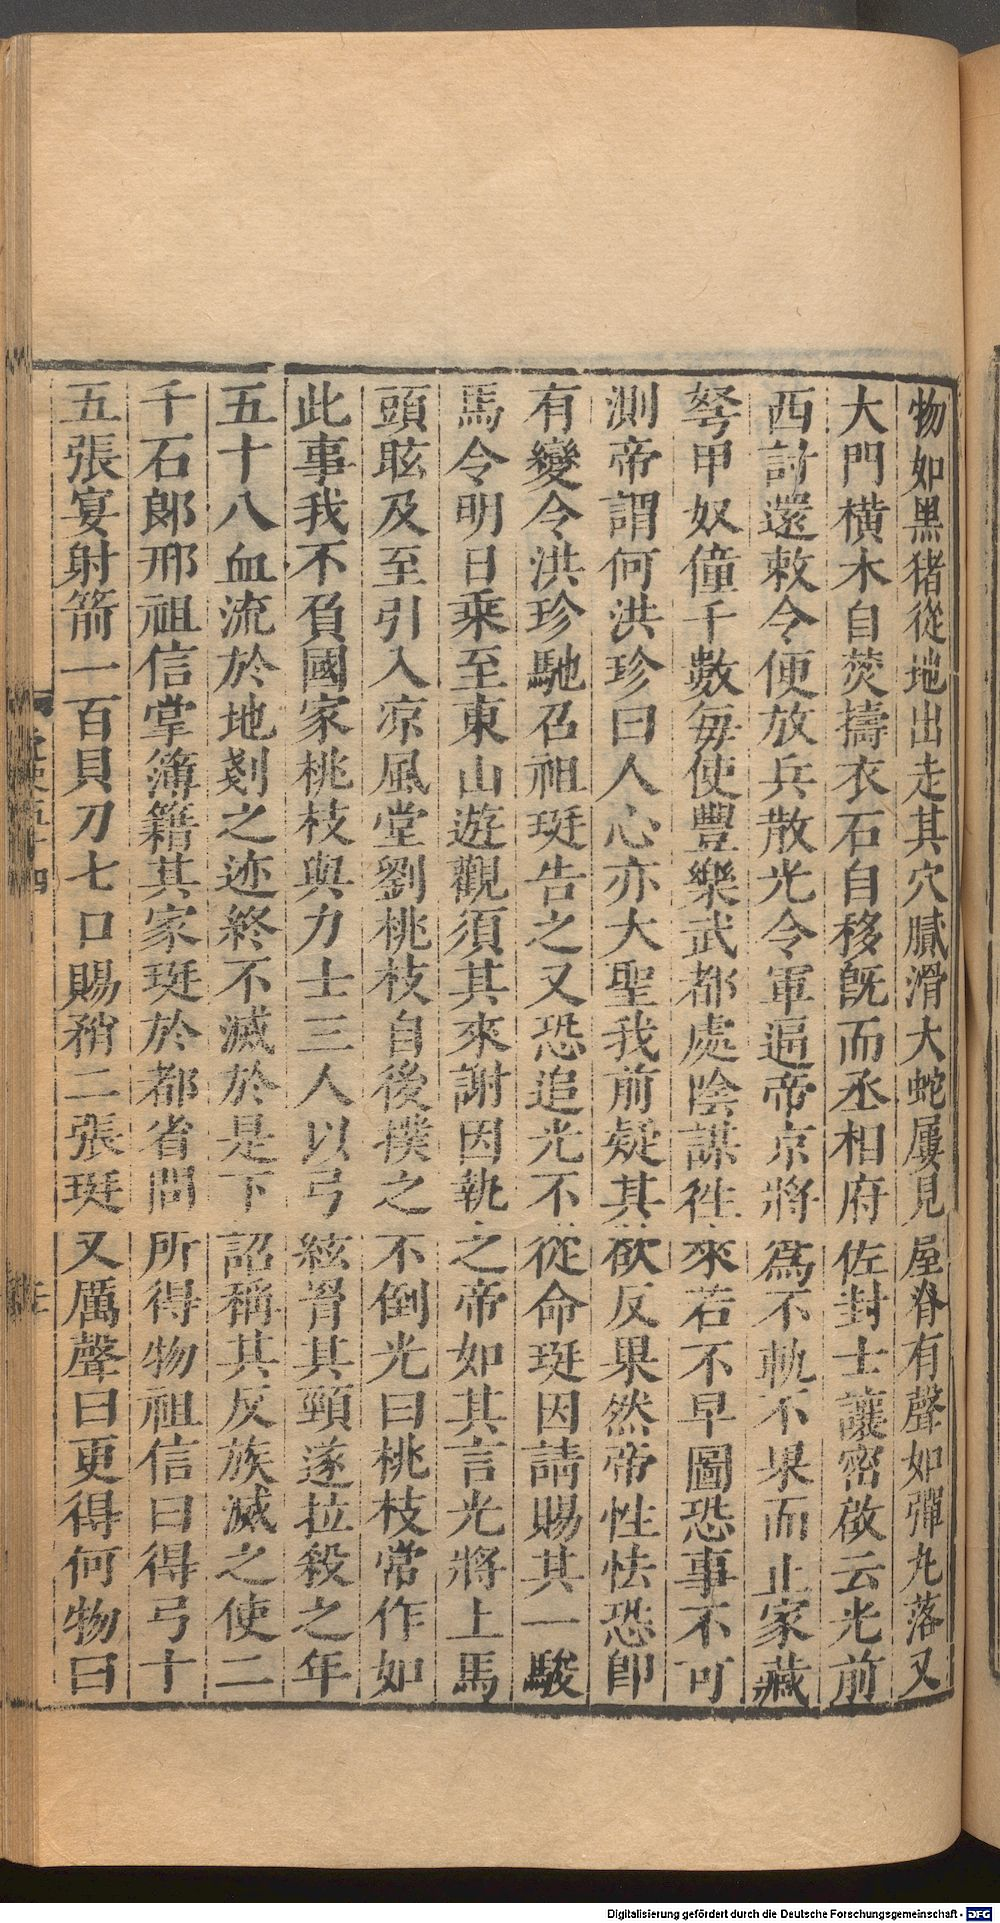 物如黑猪從地出走其穴膩滑大蛇屢見屋脊有聲如彈丸落又
大門橫木自焚擣衣石自移旣而丞相府佐封士讓密啟云光前
西討還敕令便放兵散光令軍逼帝京將爲不軌不果而止家藏
弩甲奴僮千數每使豐樂武都處陰謀往來若不早圖恐事不可
測帝謂何洪珍曰人心亦大聖我前疑其欲反果然帝性怯恐卽
有變令洪珍馳召祖珽告之又恐追光不從命珽因請賜其一駿
馬令明日乘至東山遊觀須其來謝因執之帝如其言光將上馬
頭眩及至引入凉風堂劉桃枝自後撲之不倒光曰桃枝常作如
此事我不負國家桃枝與力士三人以弓絃罥其頸遂拉殺之年
五十八血流於地剗之迹終不滅於是下詔稱其反族滅之使二
千石郎邢祖信掌簿籍其家珽於都省問所得物祖信曰得弓十
五張宴射箭一百貝刀七口賜矟二張珽又厲聲曰更得何物曰
Digitalisierung gefördert durch die Deutsche Forschungsgemeinschaft - DFG